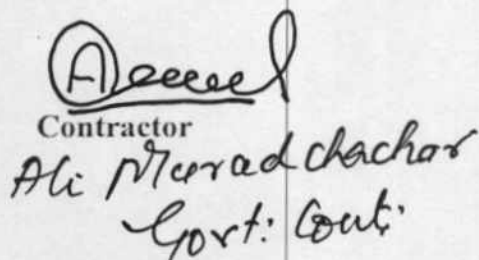 Contractor
Ali Murad chachar
Govt: Cont: